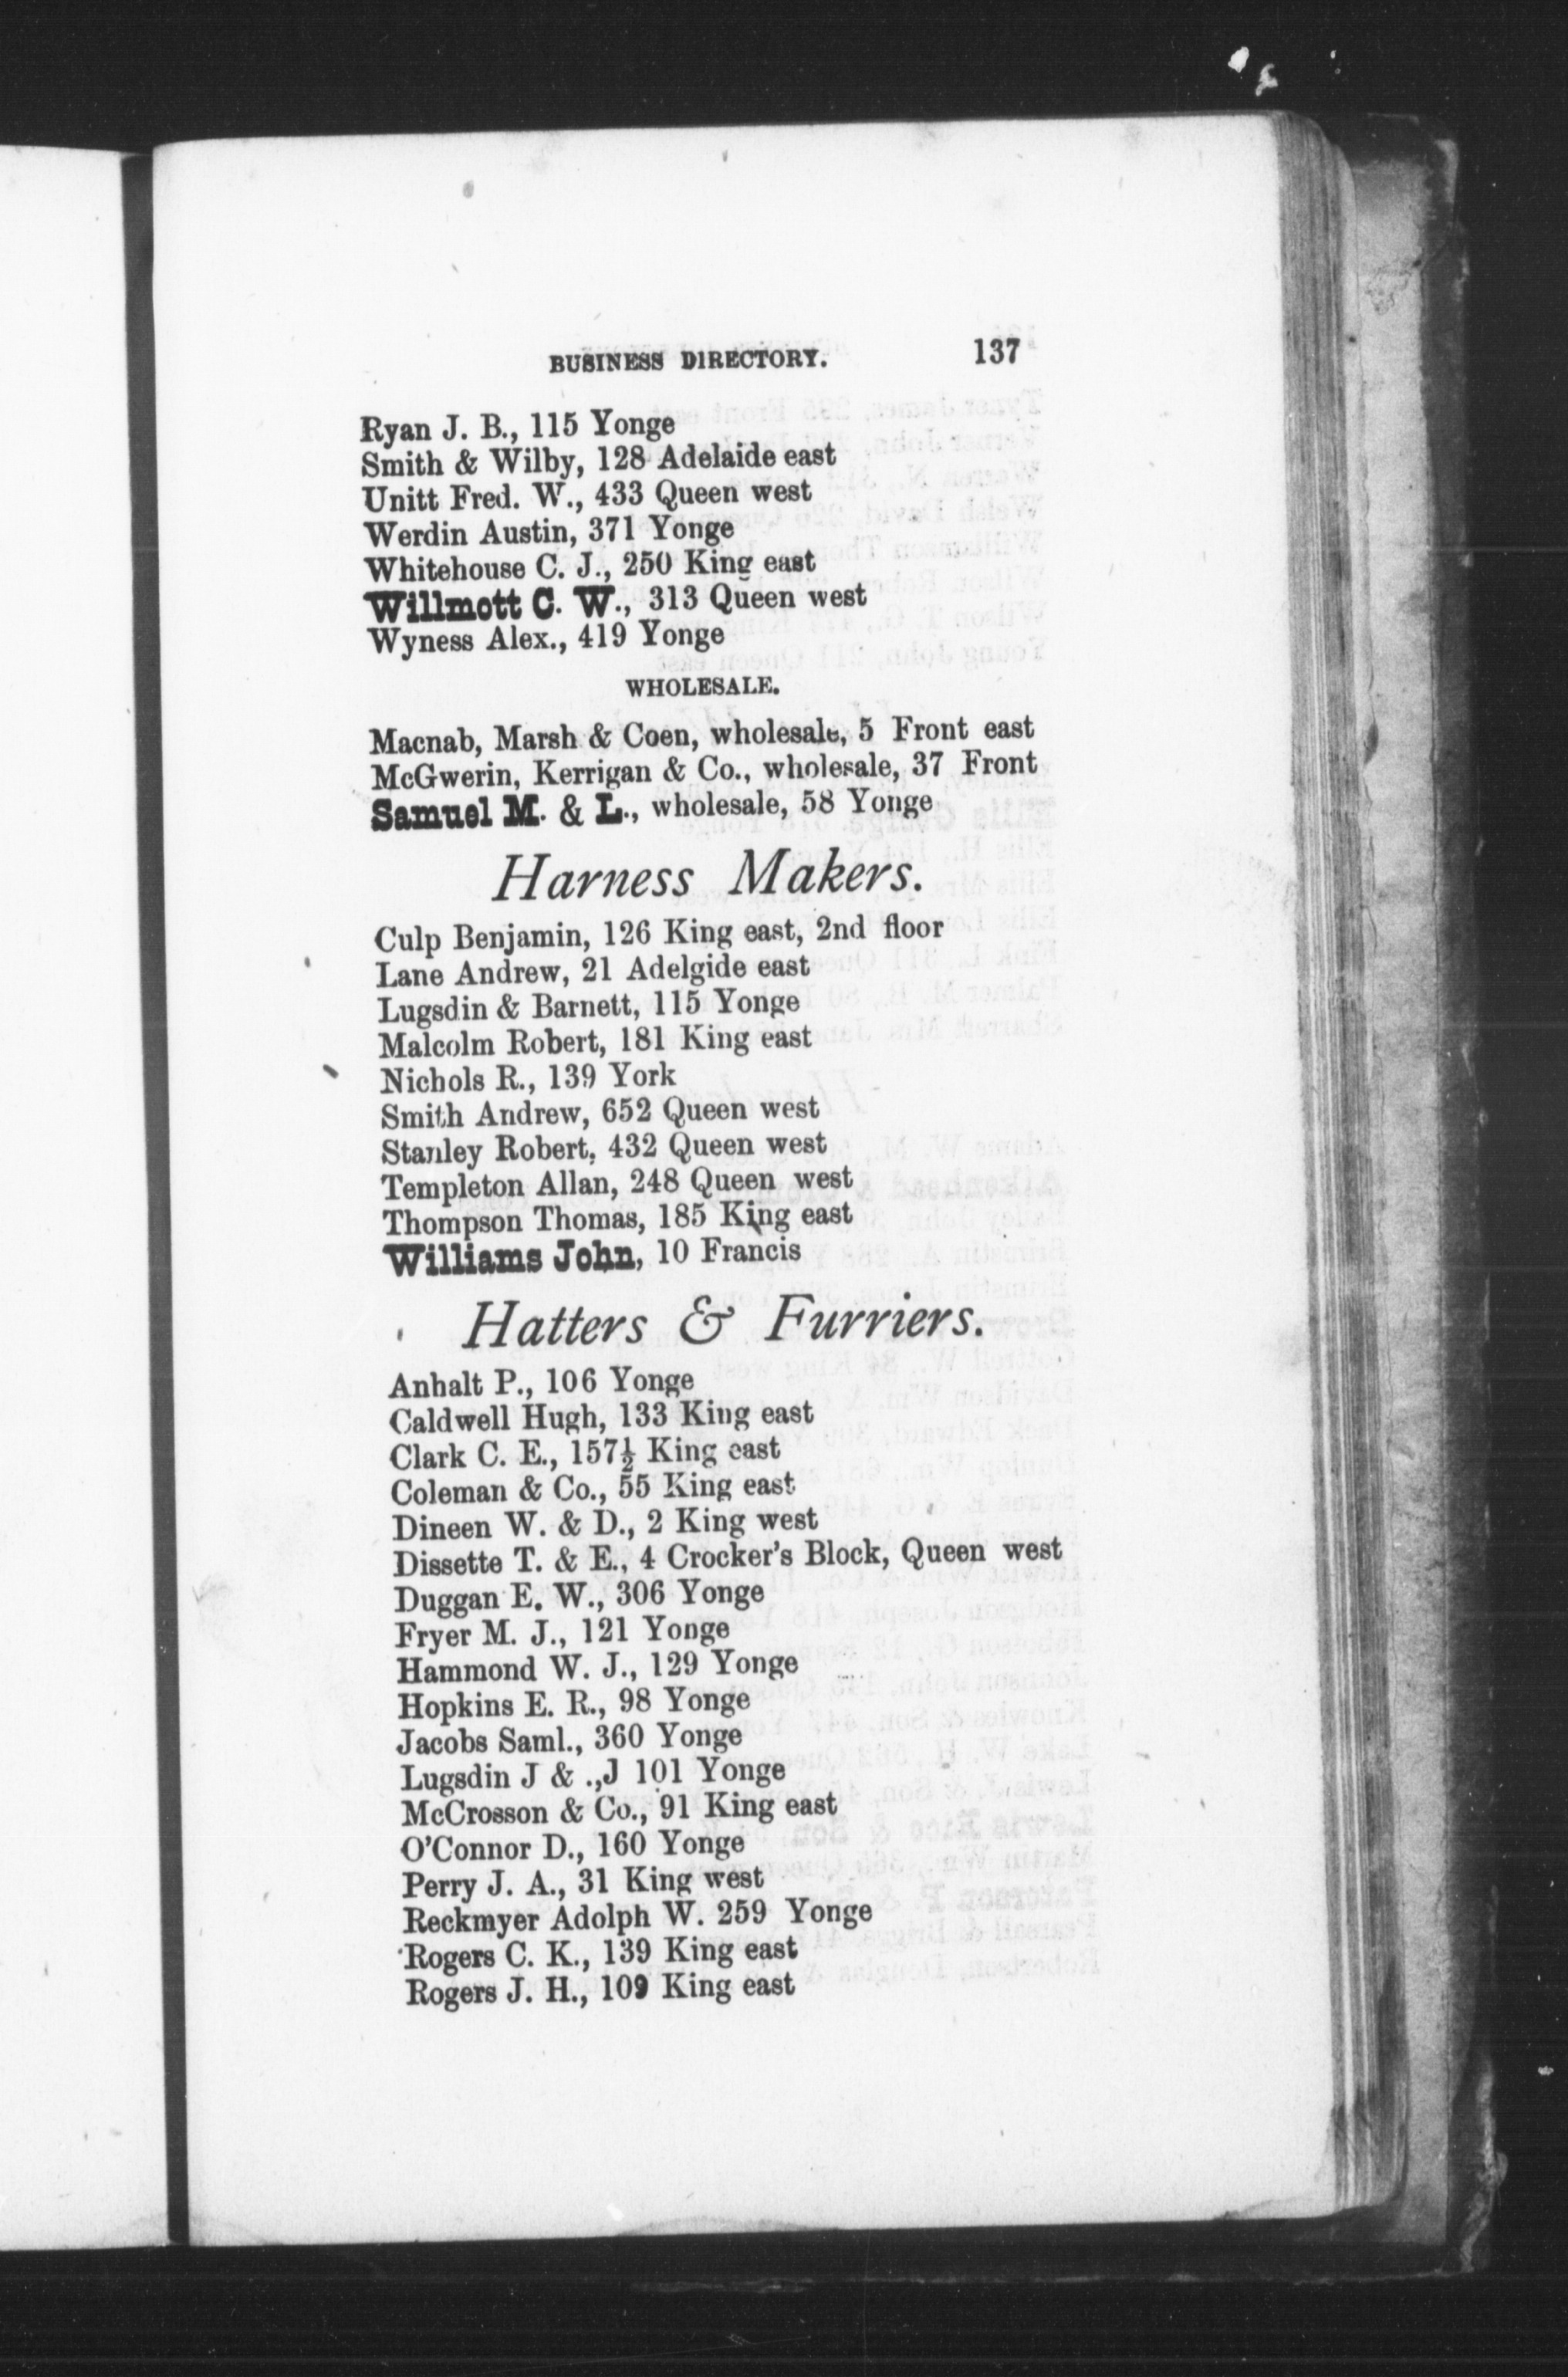 BUSINESS DIRECTORY. 137
Ryan J. B., 115 Yonge
Smith & Wilby, 128 Adelaide east
Unitt Fred. W., 433 Queen west
Werdin Austin, 371 Yonge
Whitehouse C. J., 250 King east
Willmott C. W., 313 Queen west
Wyness Alex., 419 Yonge
WHOLESALE.
Macnab, Marsh & Coen, wholesale, 5 Front east
McGwerin, Kerrigan & Co., wholesale, 37 Front
Samuel M. & L., wholesale, 58 Yonge
Harness Makers.
Culp Benjamin, 126 King east, 2nd floor
Lane Andrew, 21 Adelgide east
Lugsdin & Barnett, 115 Yonge
Malcolm Robert, 181 King east
Nichols R., 139 York
Smith Andrew, 652 Queen west
Stanley Robert, 432 Queen west
Templeton Allan, 248 Queen west
Thompson Thomas, 185 King east
Williams John, 10 Francis
Hatters & Furriers.
Anhalt P., 106 Yonge
Caldwell Hugh, 133 King east
Clark C. E., 157½ King east
Coleman & Co., 55 King east
Dineen W. & D., 2 King west
Dissette T. & E., 4 Crocker's Block, Queen west
Duggan E. W., 306 Yonge
Fryer M. J., 121 Yonge
Hammond W. J., 129 Yonge
Hopkins E. R., 98 Yonge
Jacobs Saml., 360 Yonge
Lugsdin J & .,J 101 Yonge
McCrosson & Co., 91 King east
O'Connor D., 160 Yonge
Perry J. A., 31 King west
Reckmyer Adolph W. 259 Yonge
Rogers C. K., 139 King east
Rogers J. H., 109 King east